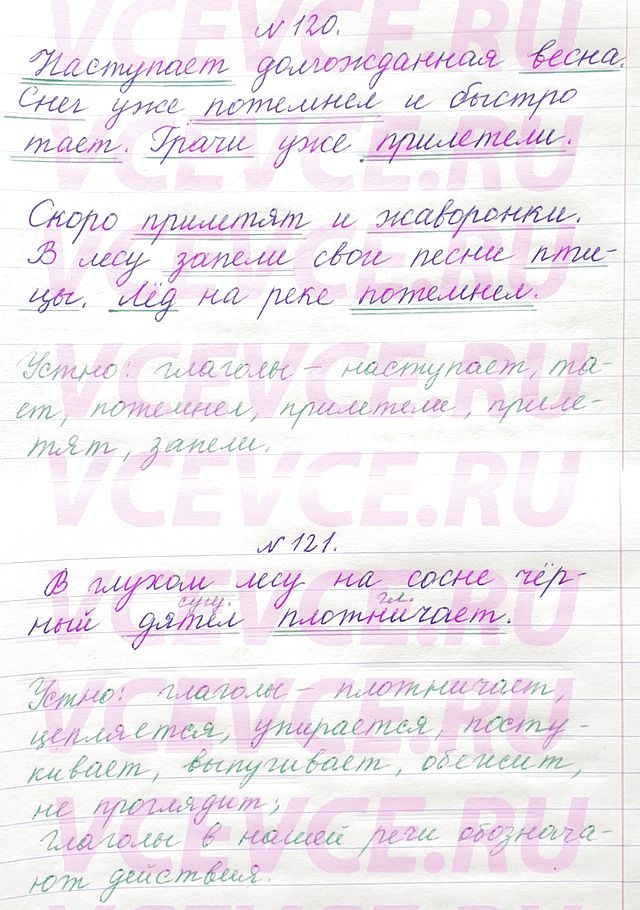 VCEVCE.RU
№ 120.
Наступает долгожданная весна.
Снег уже потемнел и быстро
тает. Грачи уже прилетели.
VCEVCE.RU
Скоро прилетят и жаворонки.
В лесу запели свои песни пти-
цы. Лёд на реке потемнел.
VCEVCE.RU
Устно: глаголы – наступает, та-
ет, потемнел, прилетели, приле-
тят, запели.
VCEVCE.RU
VCEVCE.RU
№ 121.
В глухом лесу на сосне чёр-
сущ. гл.
ный дятел плотничает.
VCEVCE.RU
Устно: глаголы – плотничает,
цепляется, упирается, посту-
кивает, выпугивает, обежит,
не проглядит;
глаголы в нашей речи обознача-
ют действия.
VCEVCE.RU
VCEVCE.RU